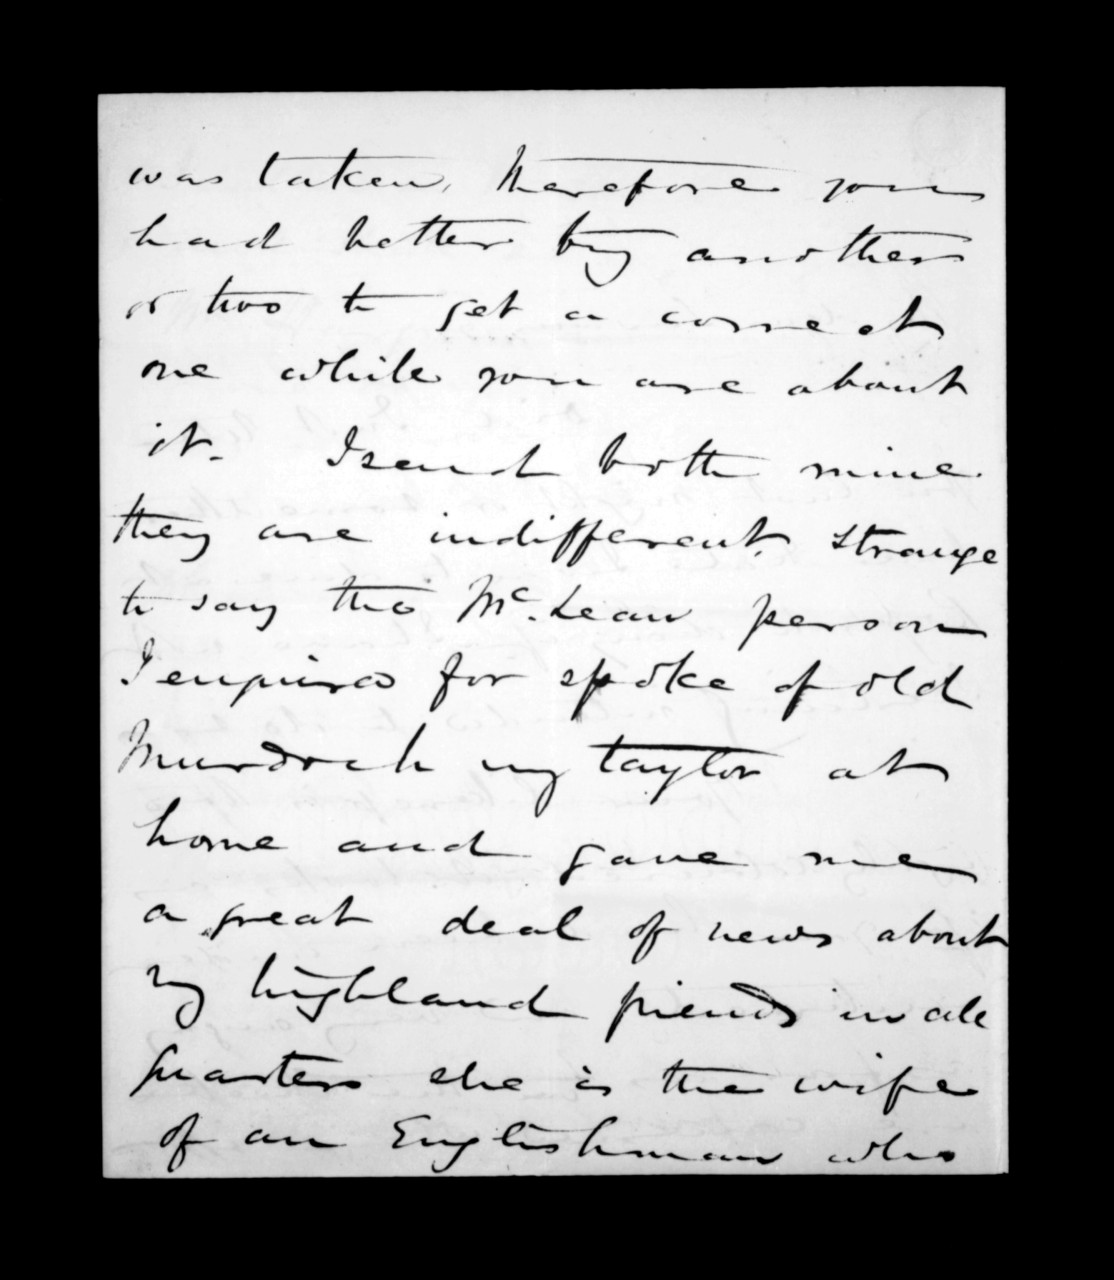 was taken, therefore you
had better try another
or two to get a correct
one while you are about
it. I send both mine
they are indifferent. strange
to say the McLean person
I enquired for spoke of old
Murdoch my taylor at
home and gave me
a great deal of news about
my highland friends in all
quarters she is the wife
of an Englishman who